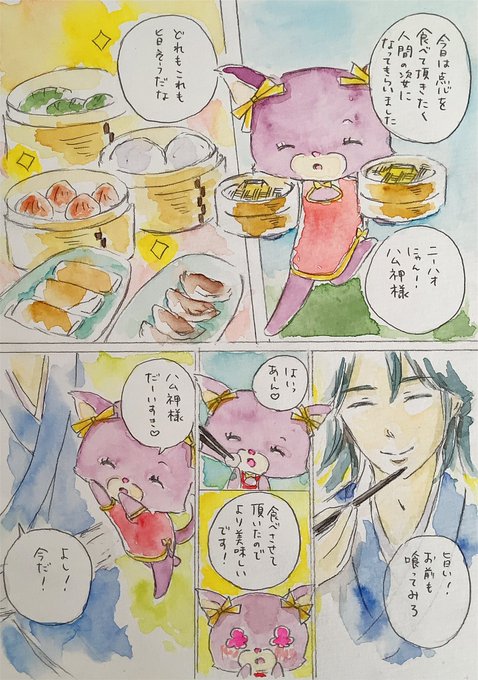 今日は点心を
食べて頂きたく
人間の姿に
なってもらいました
ニーハオ
にゃん!!
ハム神様
どれもこれも
旨そうだな
旨い!
お前も
喰ってみろ
はいっ
あーん♡
食べさせて
頂いたので
より美味しい
です!
ハム神様
だーいすき♡
よし!
今だ!